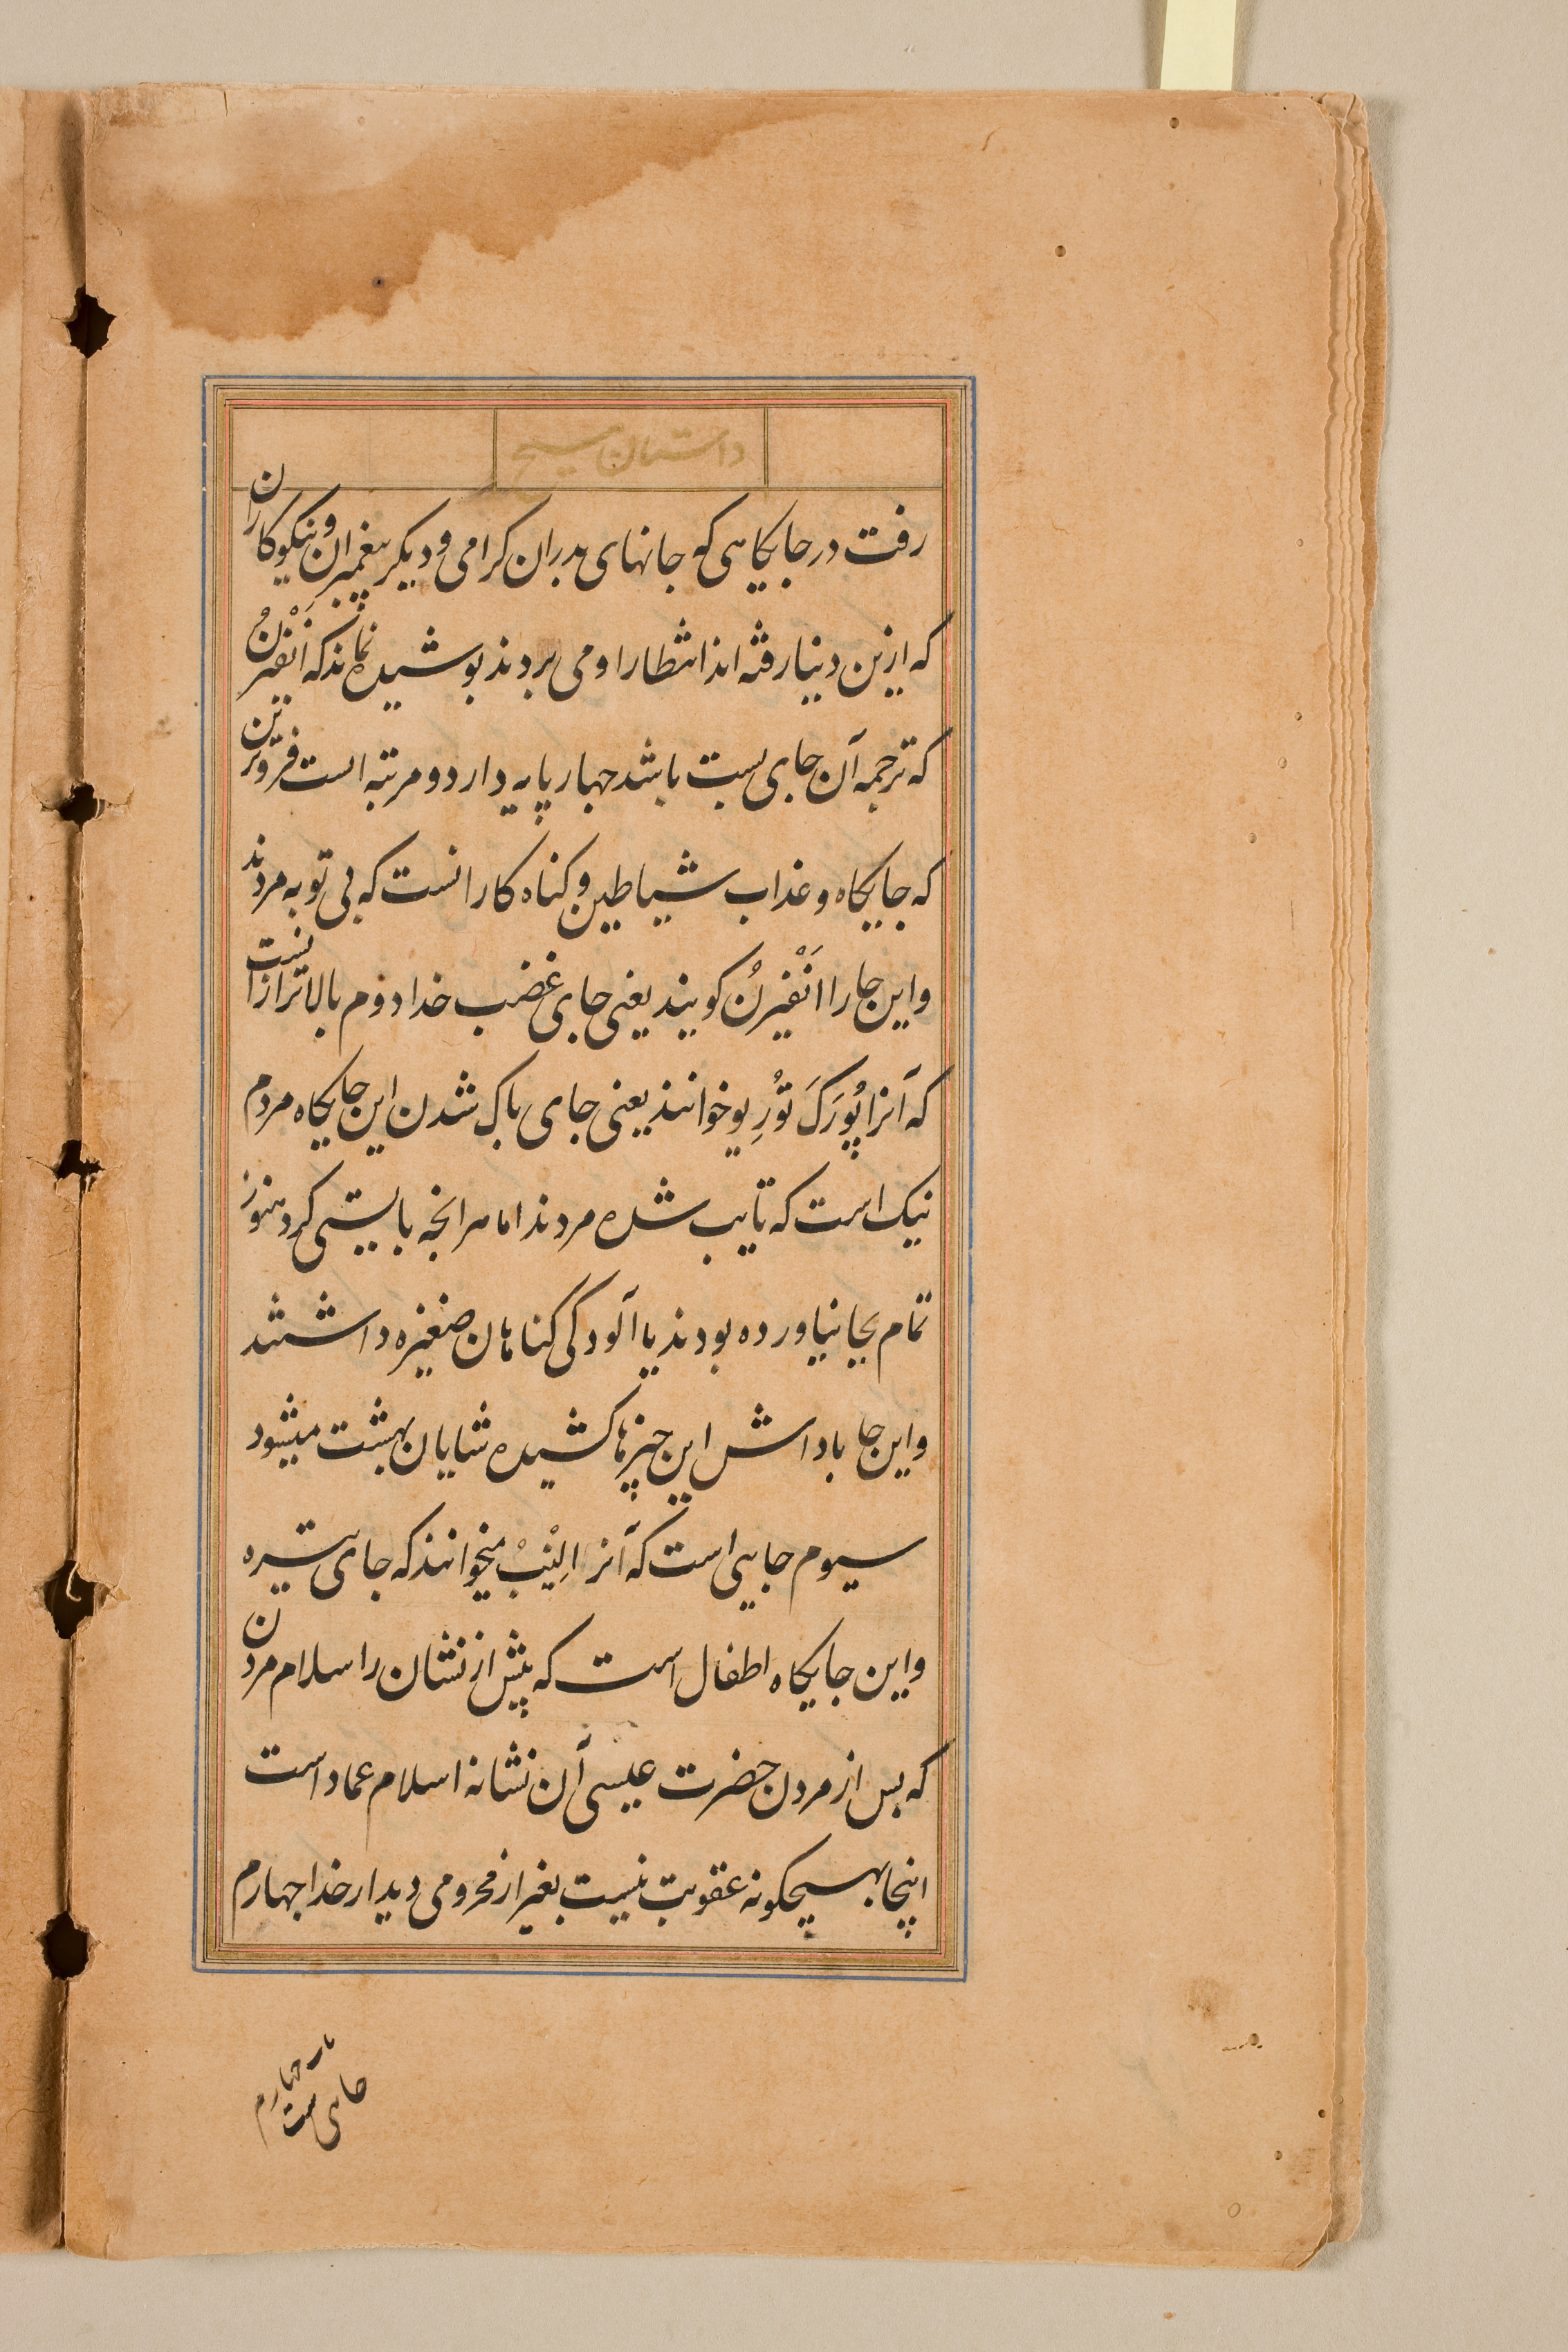 داستان مسیح
رفت در جایکاهی که جانهای پدران کرامی و دیکر پیغمبران و نیکوکاران
که ازین دنیا رفته اند انتظار او می بردند پوشیده نماند که اَنْفِرنُ
که ترجمه آن جای پست باشد چهار پایه دارد و مرتبه است فروترین
که جایکاه و عذاب شیاطین و کناه کارانست که بی توبه مردند
و این جا را اَنْفیرنُ کویند یعنی جای غضب خدا دوم بالاتر ازانست
که آنرا پُورکَ تُورِیو خوانند یعنی جای پاک شدن این جایکاه مردم
نیک است که تایب شده مردند اما سرانجه بایستی کرد هنوز
تمام بجا نیاورده بودند یا آلودکی کناهان صغیره داشتند
و این جا پاداش این چیزها کشیده شایان بهشت میشود
سیوم جایی است که آنرا لِنْبُ میخوانند که جای تیره
و این جایکاه اطفال است که پیش از نشان راسلام مردن
که پس از مردن حضرت عیسی آن نشانه اسلام عماد است
اینجا بهیچکونه عقوبت نیست بغیر از محرومی دیدار خدا چهارم
چهارم
جایی است